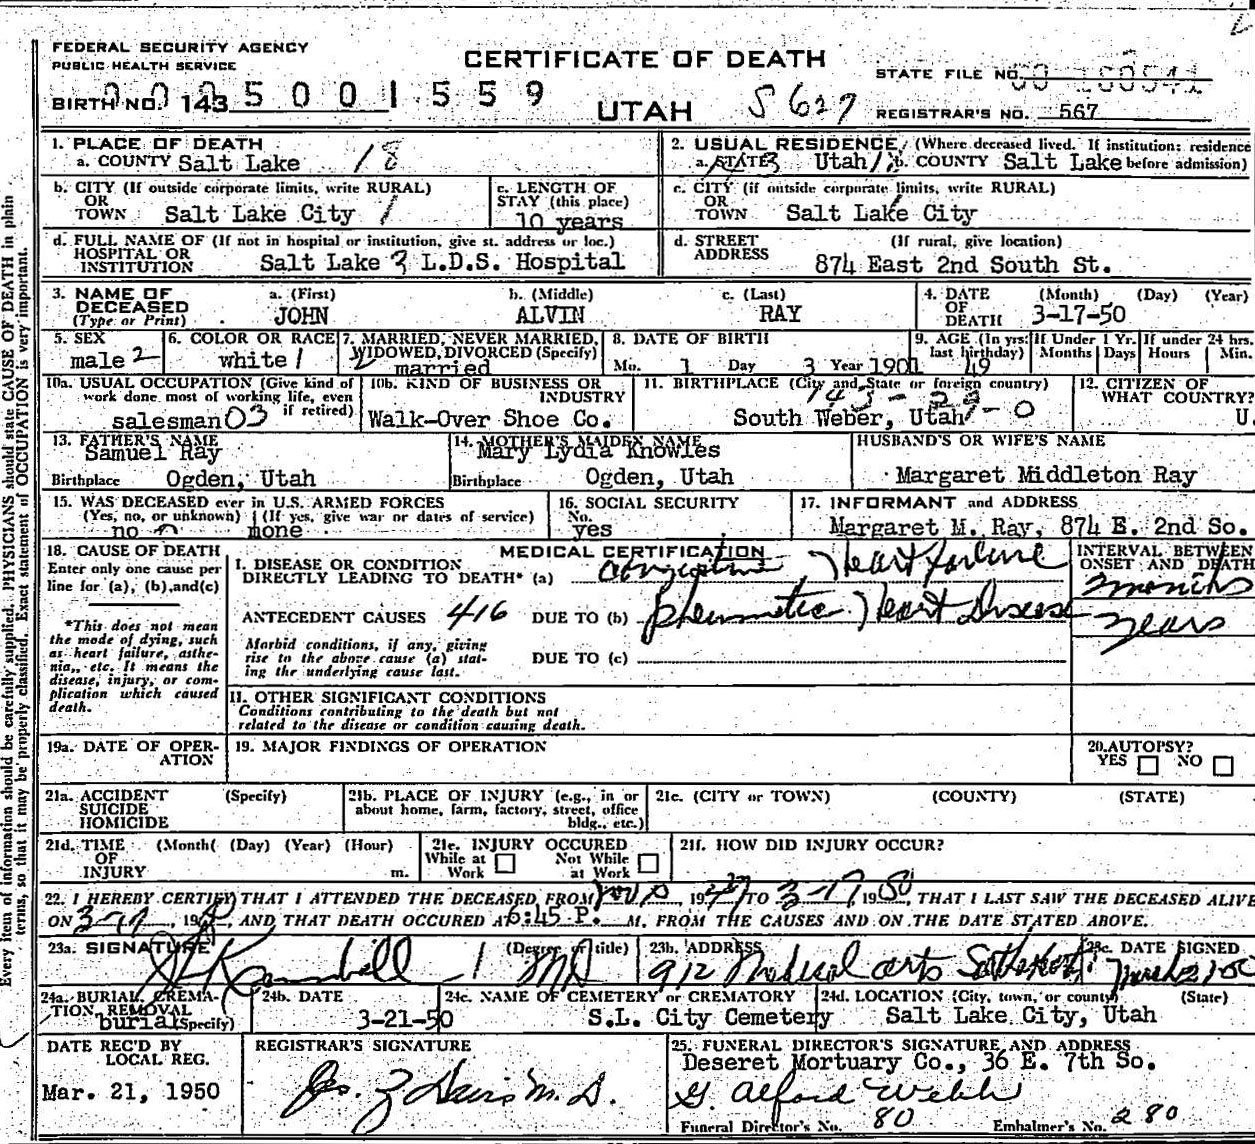 FEDERAL SECURITY AGENCY
PUBLIC HEALTH SERVICE
CERTIFICATE OF DEATH
STATE FILE NO.
BIRTH NO. 143 5001559
UTAH
S 627
REGISTRAR'S NO. 567
Every item of information should be carefully supplied. PHYSICIANS should state CAUSE OF DEATH in plain
terms, so that it may be properly classified. Exact statement of OCCUPATION is very important.
1. PLACE OF DEATH
a. COUNTY Salt Lake 18
2. USUAL RESIDENCE (Where deceased lived. If institution: residence
a. STATE Utah b. COUNTY Salt Lake before admission)
b. CITY (If outside corporate limits, write RURAL)
OR
TOWN Salt Lake City 1
c. LENGTH OF
STAY (this place)
10 years
c. CITY (if outside corporate limits, write RURAL)
OR
TOWN Salt Lake City
d. FULL NAME OF (If not in hospital or institution, give st. address or loc.)
HOSPITAL OR
INSTITUTION Salt Lake 3 L.D.S. Hospital
d. STREET (If rural, give location)
ADDRESS 874 East 2nd South St.
3. NAME OF a. (First) b. (Middle) c. (Last)
DECEASED
(Type or Print) JOHN ALVIN RAY
4. DATE (Month) (Day) (Year)
OF
DEATH 3-17-50
5. SEX
male 2
6. COLOR OR RACE
white 1
7. MARRIED, NEVER MARRIED,
WIDOWED, DIVORCED (Specify)
2 married
8. DATE OF BIRTH
Mo. 1 Day 3 Year 1901
9. AGE (In yrs. last birthday) 49
If Under 1 Yr. Months Days
If under 24 hrs. Hours Min.
10a. USUAL OCCUPATION (Give kind of
work done most of working life, even
if retired)
salesman 03
10b. KIND OF BUSINESS OR
INDUSTRY
Walk-Over Shoe Co.
11. BIRTHPLACE (City and State or foreign country)
South Weber, Utah
12. CITIZEN OF
WHAT COUNTRY?
U.
13. FATHER'S NAME
Samuel Ray
Birthplace Ogden, Utah
14. MOTHER'S MAIDEN NAME
Mary Lydia Knowles
Birthplace Ogden, Utah
HUSBAND'S OR WIFE'S NAME
Margaret Middleton Ray
15. WAS DECEASED ever in U.S. ARMED FORCES
(Yes, no, or unknown) (If yes, give war or dates of service)
no none
16. SOCIAL SECURITY
No.
yes
17. INFORMANT and ADDRESS
Margaret M. Ray, 874 E. 2nd So.
18. CAUSE OF DEATH
Enter only one cause per
line for (a), (b), and (c)
*This does not mean
the mode of dying, such
as heart failure, asthe-
nia, etc. It means the
disease, injury, or com-
plication which caused
death.
MEDICAL CERTIFICATION
I. DISEASE OR CONDITION
DIRECTLY LEADING TO DEATH* (a) Congestive Heart failure
ANTECEDENT CAUSES 416 DUE TO (b) Rheumatic Heart Disease
Morbid conditions, if any, giving
rise to the above cause (a) stat-
ing the underlying cause last.
DUE TO (c)
INTERVAL BETWEEN
ONSET AND DEATH
months
years
II. OTHER SIGNIFICANT CONDITIONS
Conditions contributing to the death but not
related to the disease or condition causing death.
19a. DATE OF OPER-
ATION
19. MAJOR FINDINGS OF OPERATION
20. AUTOPSY?
YES NO
21a. ACCIDENT (Specify)
SUICIDE
HOMICIDE
21b. PLACE OF INJURY (e.g., in or
about home, farm, factory, street, office
bldg., etc.)
21c. (CITY or TOWN) (COUNTY) (STATE)
21d. TIME (Month( (Day) (Year) (Hour)
OF
INJURY m.
21e. INJURY OCCURED
While at Work Not While at Work
21f. HOW DID INJURY OCCUR?
22. I HEREBY CERTIFY THAT I ATTENDED THE DECEASED FROM 19 TO 3-17 1950, THAT I LAST SAW THE DECEASED ALIVE
ON 3-17, 19 AND THAT DEATH OCCURED AT 6:45 P. M, FROM THE CAUSES AND ON THE DATE STATED ABOVE.
23a. SIGNATURE (Degree or title)
MD
23b. ADDRESS
912 Medical arts
23c. DATE SIGNED
March 21-50
24a. BURIAL, CREMA-
TION, REMOVAL
burial (Specify)
24b. DATE
3-21-50
24c. NAME OF CEMETERY or CREMATORY
S.L. City Cemetery
24d. LOCATION (City, town, or county) (State)
Salt Lake City, Utah
DATE REC'D BY
LOCAL REG.
Mar. 21, 1950
REGISTRAR'S SIGNATURE
25. FUNERAL DIRECTOR'S SIGNATURE AND ADDRESS
Deseret Mortuary Co., 36 E. 7th So.
G. Alford Webb
Funeral Director's No. 80 Embalmer's No. 280